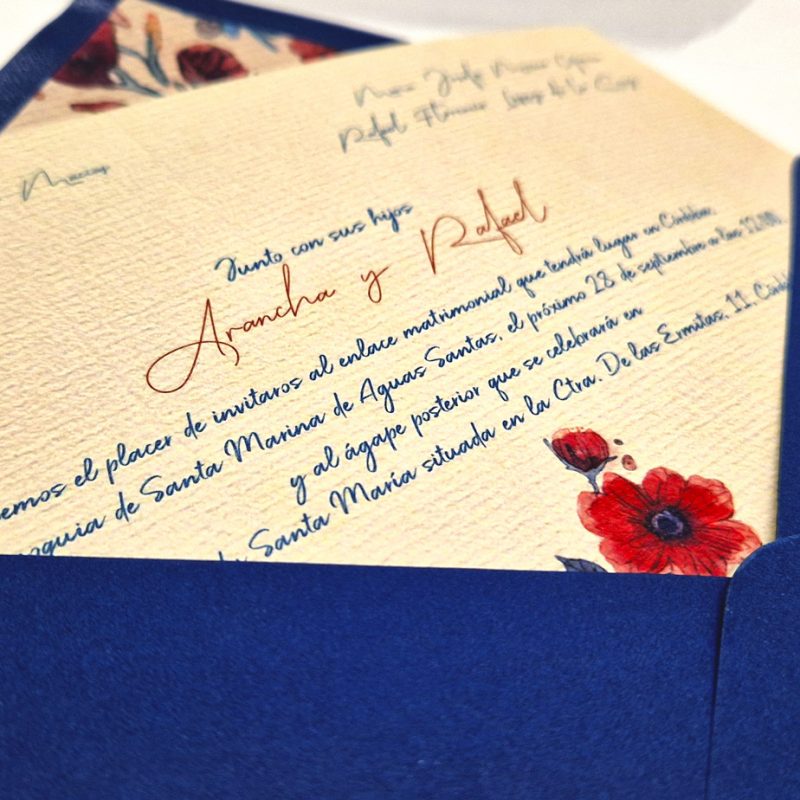 Rafael
Junto con sus hijos
Arancha y Rafael
emos el placer de invitaros al enlace matrimonial que tendrá lugar en Córdoba
oquia de Santa Marina de Aguas Santas, el próximo 28 de septiembre a las 12:00
y al ágape posterior que se celebrará en
Santa María situada en la Ctra. De las Ermitas, 11, Córd